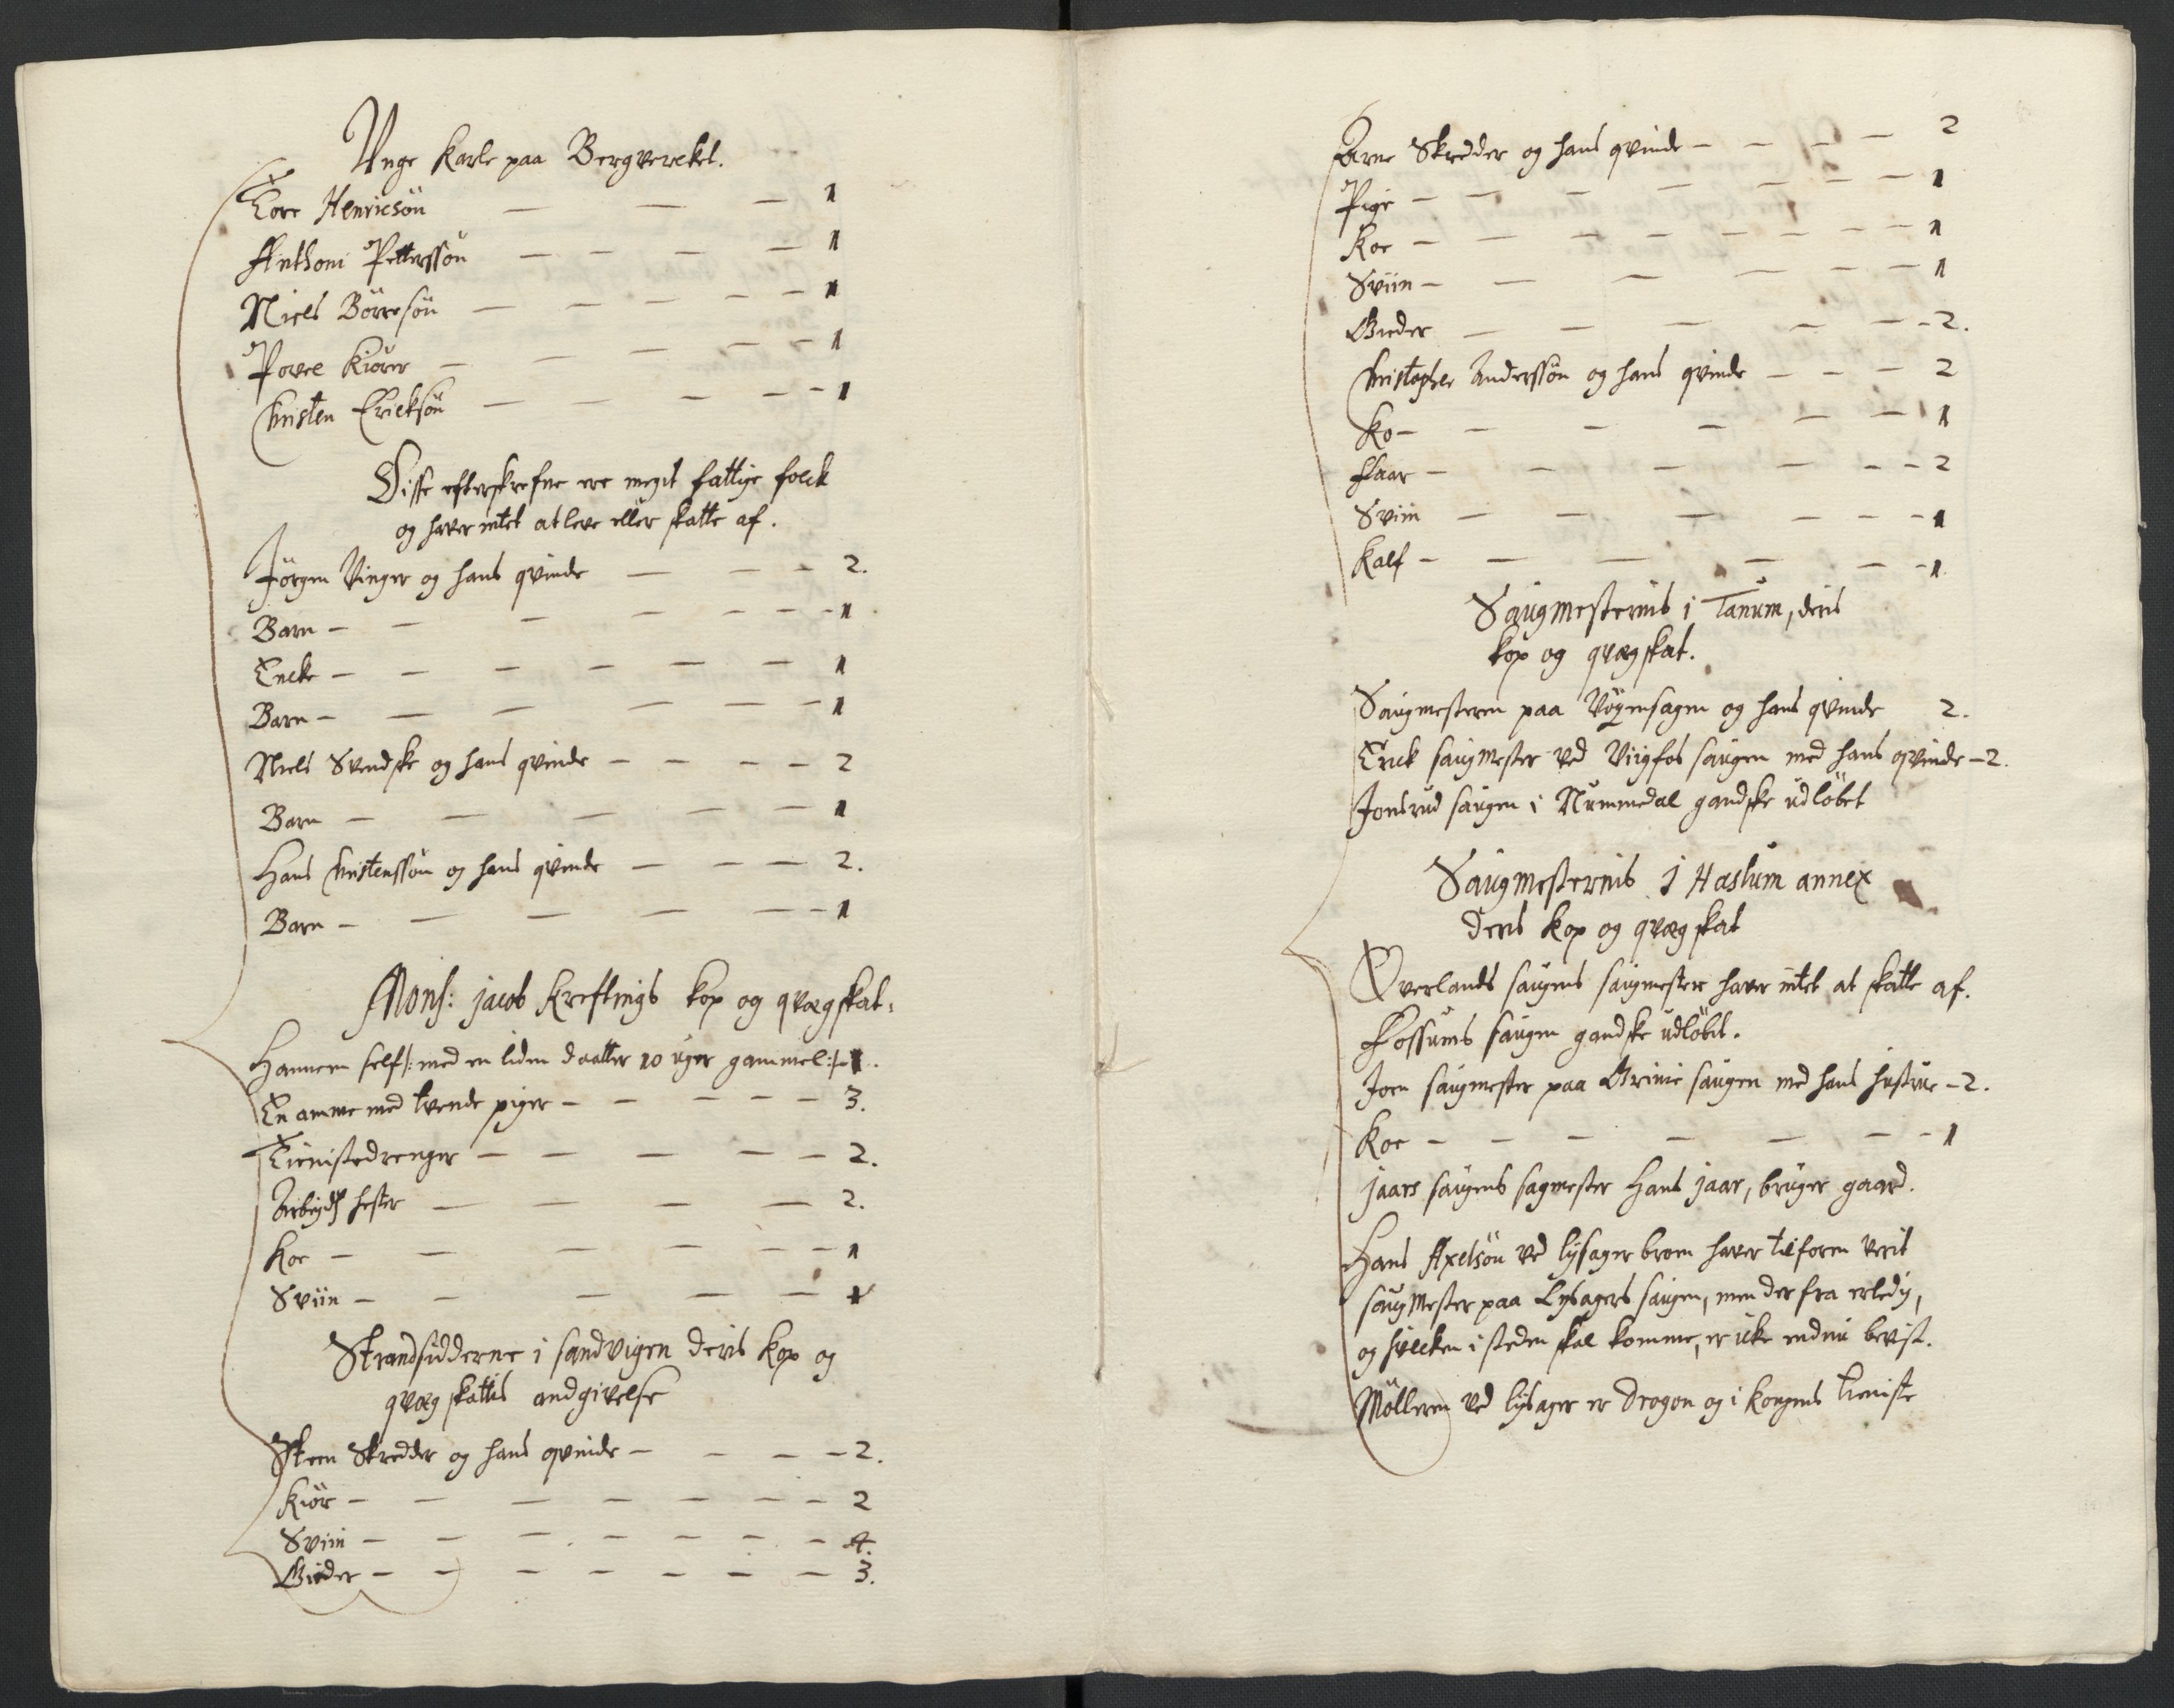 Unge Karle paa Bergverckel.
Tore Henricsön — — — 1
Anthoni Pettersson — — — — 1
Niels Börresön — — — — — 1
Povel Kiörer — — — — — 1
Christen Ericksön — — — — — 1
Disse efterskrefne ere megit fattige folck
og haver intet at leve eller skatte af.
Jörgen Vinger og hans qvinde — — — 2.
Barn — — — — — — 1
Encke — — — — — — 1
Barn — — — — — — 1
Niels Svendske og hans qvinde — — — — 2
Barn — — — — — — 1
Hans Christenssön og hans qvinde — — — 2.
Barn — — — — — — 1
Mons: jacob Kreftings kop og qvægskat.
Hannem self /: med en liden daatter 20 uger gammel :/ — 1.
En amme med tvende piger — — — — — 3.
Tienistedrenger — — — — — 2.
Arbeyds hester — — — — 2.
Koe — — — — — — 1
Sviin — — — — — 1
Strandsidderne i sandvigen deris kop og
qvæg skattis andgivelse
Steen Skredder og hans qvinde — — — — 2.
Kiör — — — — — — — 2
Sviin — — — — — — — 4.
Gieder — — — — — — — 3.
Arne Skredder og hans qvinde — — — — 2
Pige — — — — — — — 1
Koe — — — — — — — — 1
Sviin — — — — — — 1
Gieder — — — — — — 2.
Christopher Anderssön og hans qvinde — — — 2
Ko — — — — — — 1
Faar — — — — — — 2
Sviin — — — — — — 1
Kalf — — — — — — 1
Saugmesternis i Tanum, deris
kop og qvæg skat.
Saugmesteren paa Vöyensagen og hans qvinde 2.
Erick saugmester ved Viigfos saugen med hans qvinde — 2.
Jonsrud saugen i Nummedal gandske udlöbet
Saugmesternis i Haslum annex
deris kop og qvæg skat
Overlands saugens saugmester haver intet at skatte af.
Fossums saugen gandske udlöbet.
Joen saugmester paa Grinie saugen med hans hustrue — 2.
Koe — — — — — — — 1
jaars saugens sagmester Hans jaar, bruger gaard.
Hans Axelsön ved lysager broen haver tilforen verit
saugmester paa Lysagers saugen, men der fra erledig,
og hvilcken i steden skal komme, er icke endnu bevist.
Mölleren ved lysager er Dragon og i kongens tieniste